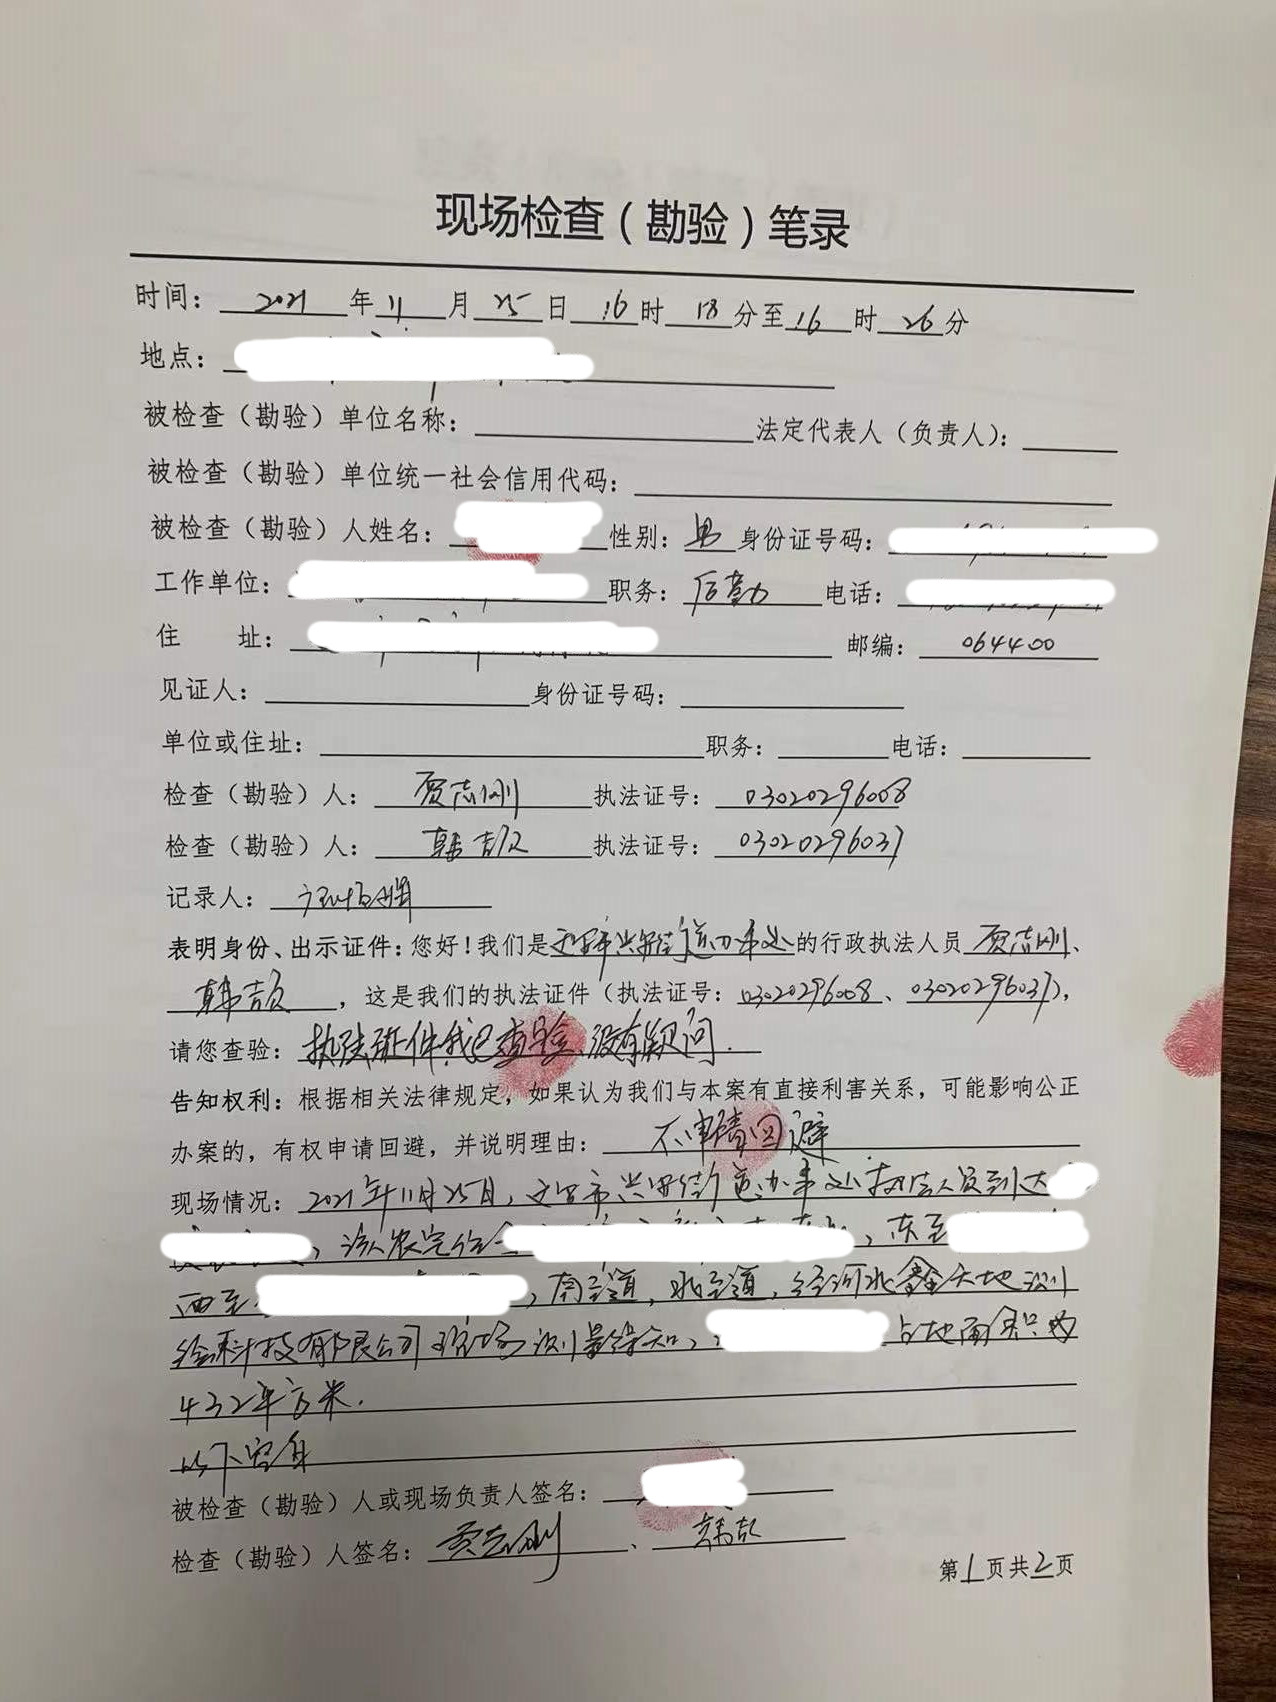 现场检查（勘验）笔录
时间： 2021 年 11 月 25 日 16 时 18 分至 16 时 26 分
地点：
被检查（勘验）单位名称： 法定代表人（负责人）：
被检查（勘验）单位统一社会信用代码：
被检查（勘验）人姓名： 性别： 男 身份证号码：
工作单位： 职务： 后勤 电话：
住 址： 邮编： 064400
见证人： 身份证号码：
单位或住址： 职务： 电话：
检查（勘验）人： 贾志刚 执法证号： 03020296008
检查（勘验）人： 韩颉 执法证号： 03020296037
记录人：
表明身份、出示证件：您好！我们是迁安市兴安街道办事处的行政执法人员 贾志刚、
韩颉 ，这是我们的执法证件（执法证号：03020296008、03020296037），
请您查验：执法证件我已查验，没有疑问．
告知权利：根据相关法律规定，如果认为我们与本案有直接利害关系，可能影响公正
办案的，有权申请回避，并说明理由： 不申请回避
现场情况：2021年11月25日，迁安市兴安街道办事处执法人员到达
，该农宅位 ，东至
西至 ，南至道，北至道，经河北鑫天地测
绘科技有限公司现场测量得知， 占地面积为
432平方米．
以下空白
被检查（勘验）人或现场负责人签名：
检查（勘验）人签名： 贾志刚 、 韩颉
第1页共2页